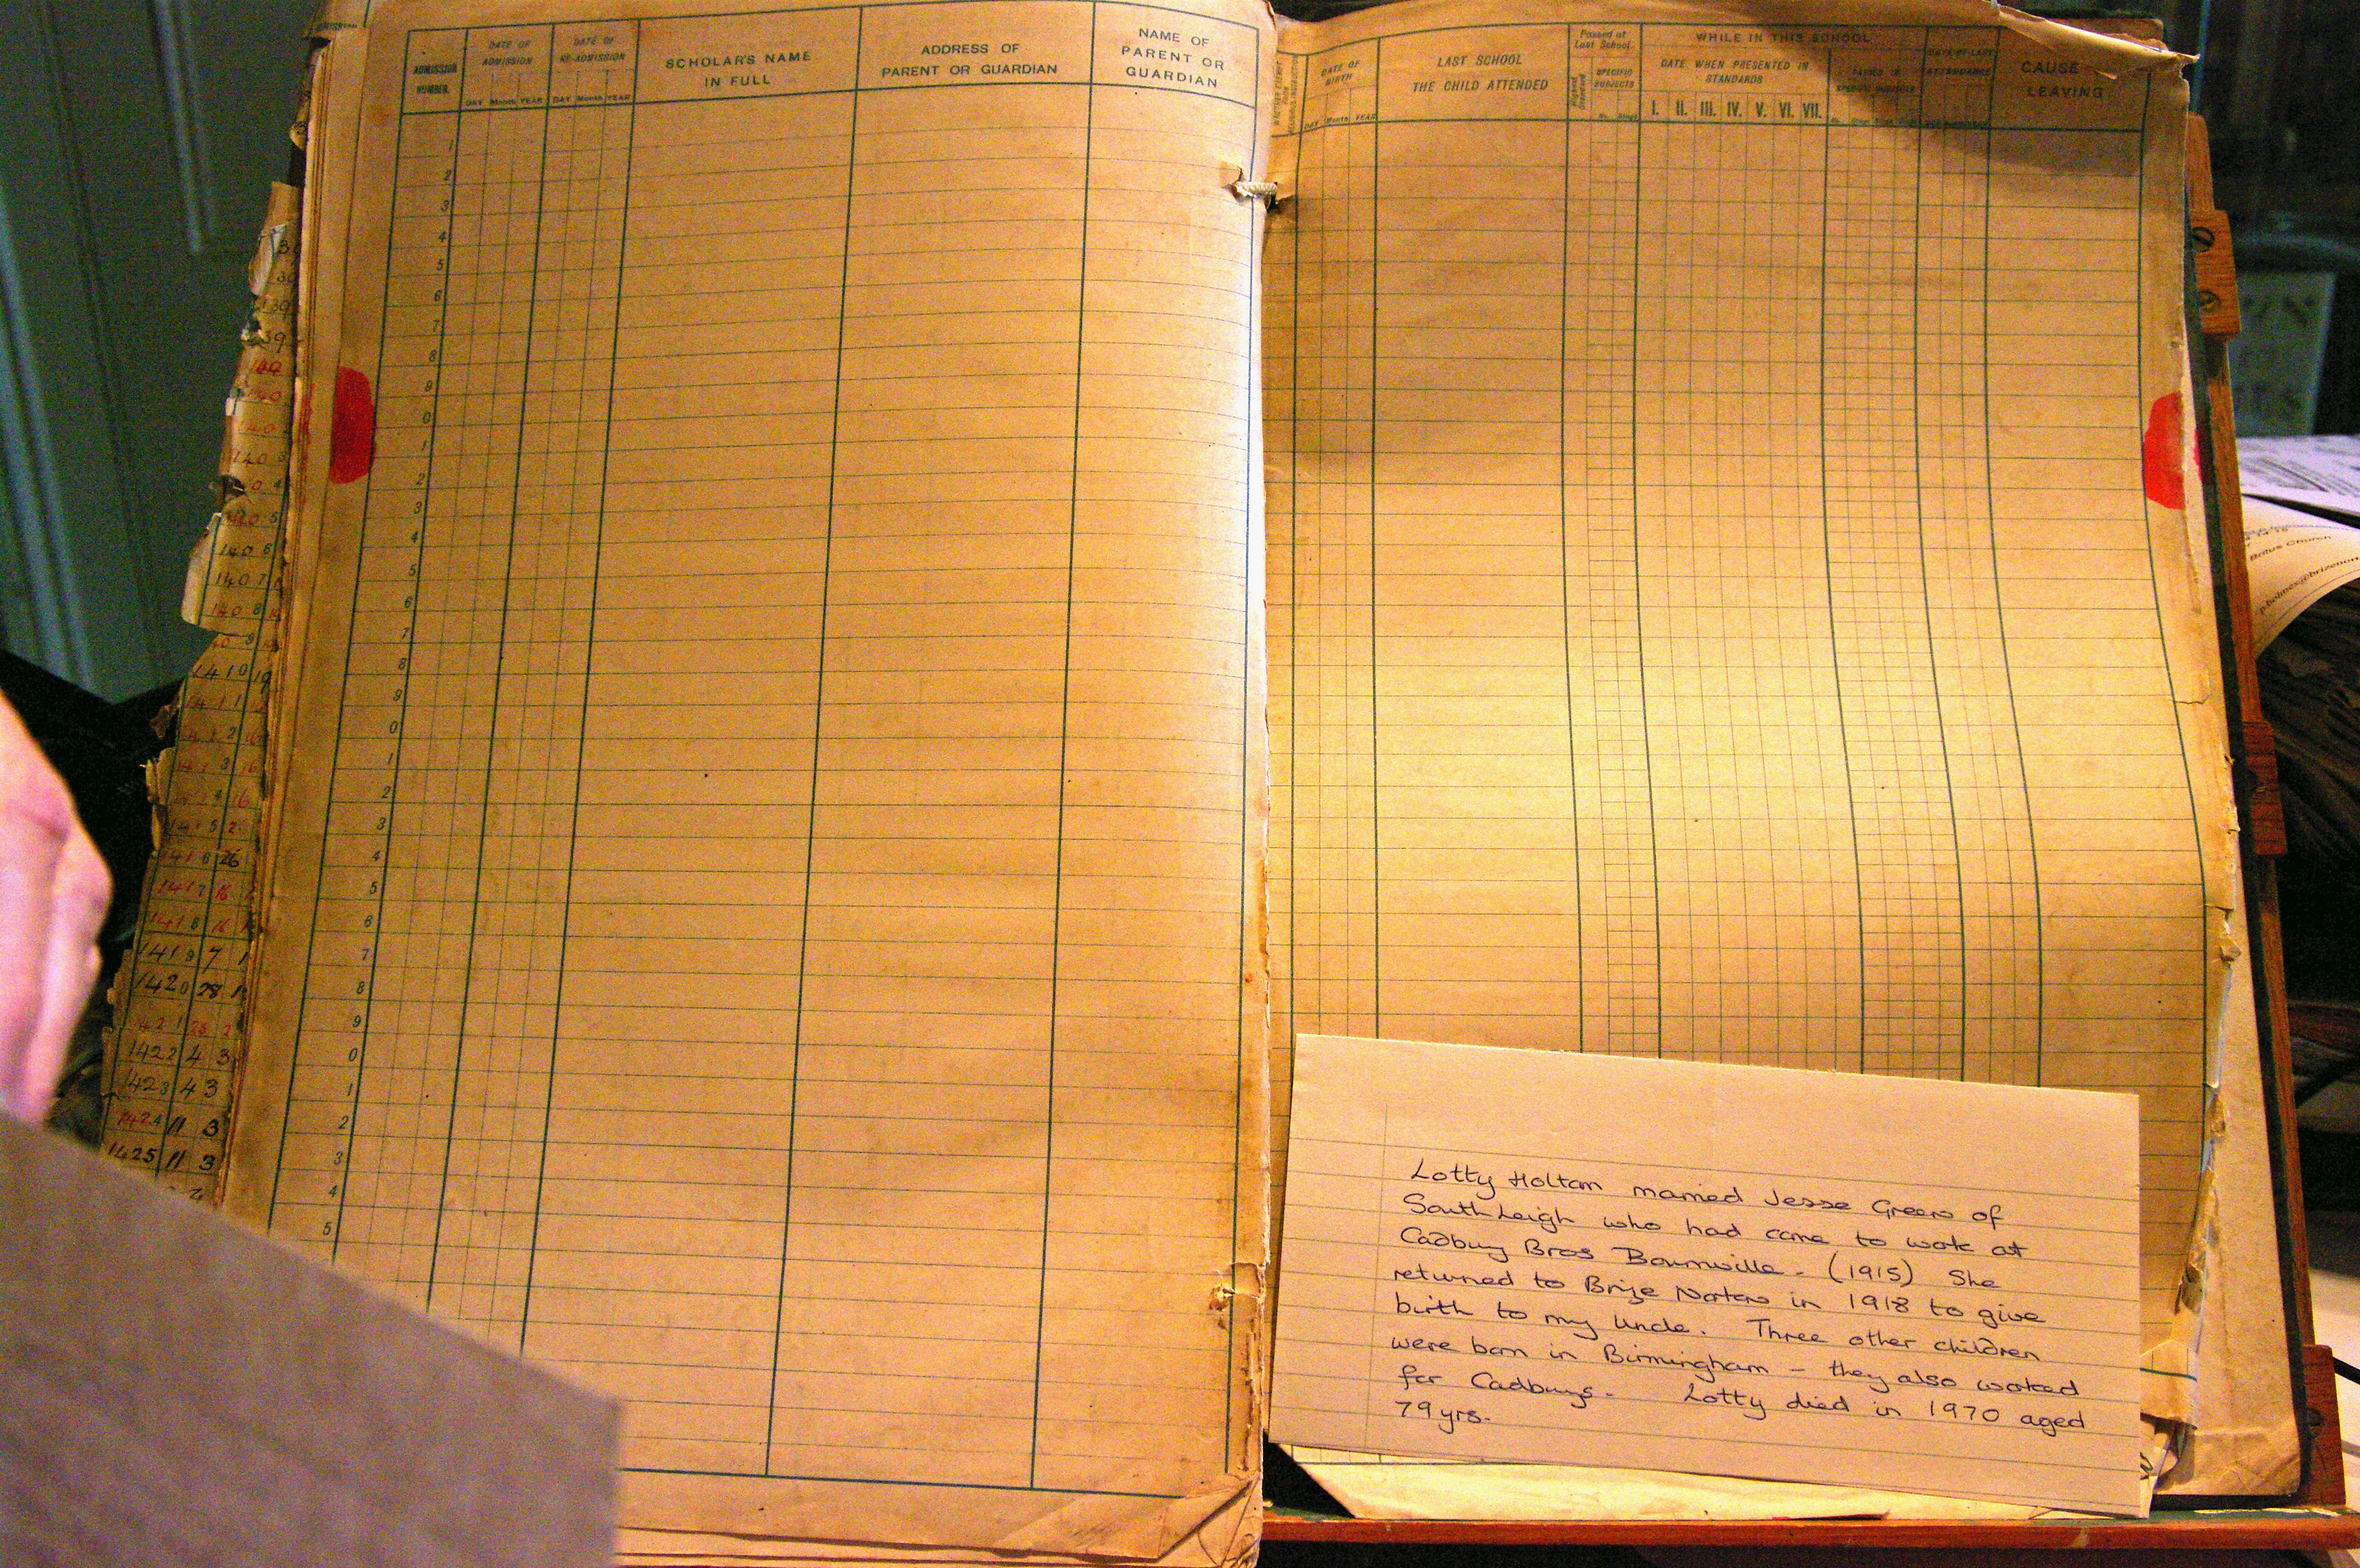 ADMISSION NUMBER.
DATE OF ADMISSION
DAY Month YEAR
DATE OF RE-ADMISSION
DAY Month YEAR
SCHOLAR'S NAME
IN FULL
ADDRESS OF
PARENT OR GUARDIAN
NAME OF
PARENT OR
GUARDIAN
DATE OF BIRTH
DAY Month YEAR
LAST SCHOOL
THE CHILD ATTENDED
Passed at
Last School.
Highest Standard
SPECIFIC
SUBJECTS
WHILE IN THIS SCHOOL
DATE WHEN PRESENTED IN
STANDARDS
I. II. III. IV. V. VI. VII.
PASSED IN
SPECIFIC SUBJECTS
DATE OF LAST
ATTENDANCE
CAUSE
LEAVING
1
2
3
4
5
6
7
8
9
0
1
2
3
4
5
6
7
8
9
0
1
2
3
4
5
6
7
8
9
0
1
2
3
4
5
140 3
140 6
140 7
140 8
1410 19
1416 26
1417 16
1418 16
1419 7 1
1420 28 1
1422 4 3
1423 4 3
1424 11 3
1425 11 3
Lotty Holtom married Jesse Green of
South Leigh who had come to work at
Cadbury Bros Bournville - (1915) She
returned to Brize Norton in 1918 to give
birth to my Uncle. Three other children
were born in Birmingham - they also worked
for Cadburys. Lotty died in 1970 aged
79 yrs.
Britius Church